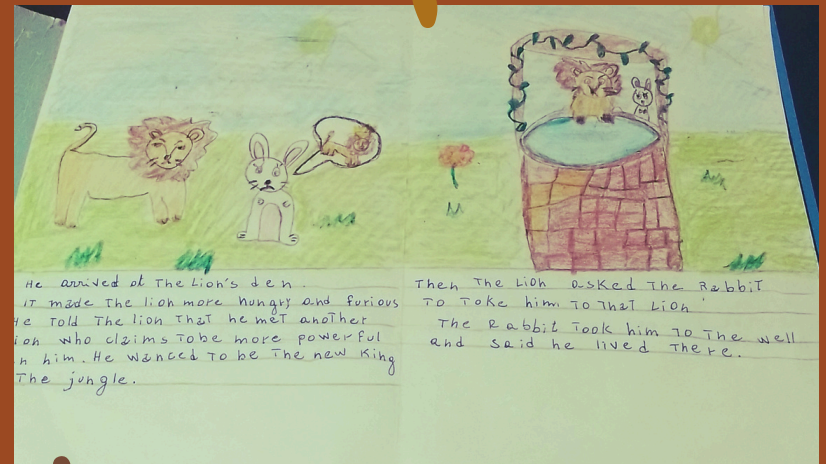 He arrived at The Lion's den.
IT made The lion more hungry and furious
He Told The lion ThaT he meT another
ion who claims To be more powerful
n him. He wanced To be The new King
The jungle.
Then The Lion asked The RabbiT
To Toke him To ThaT Lion
The Rabbit Took him To The well
and said he lived There.